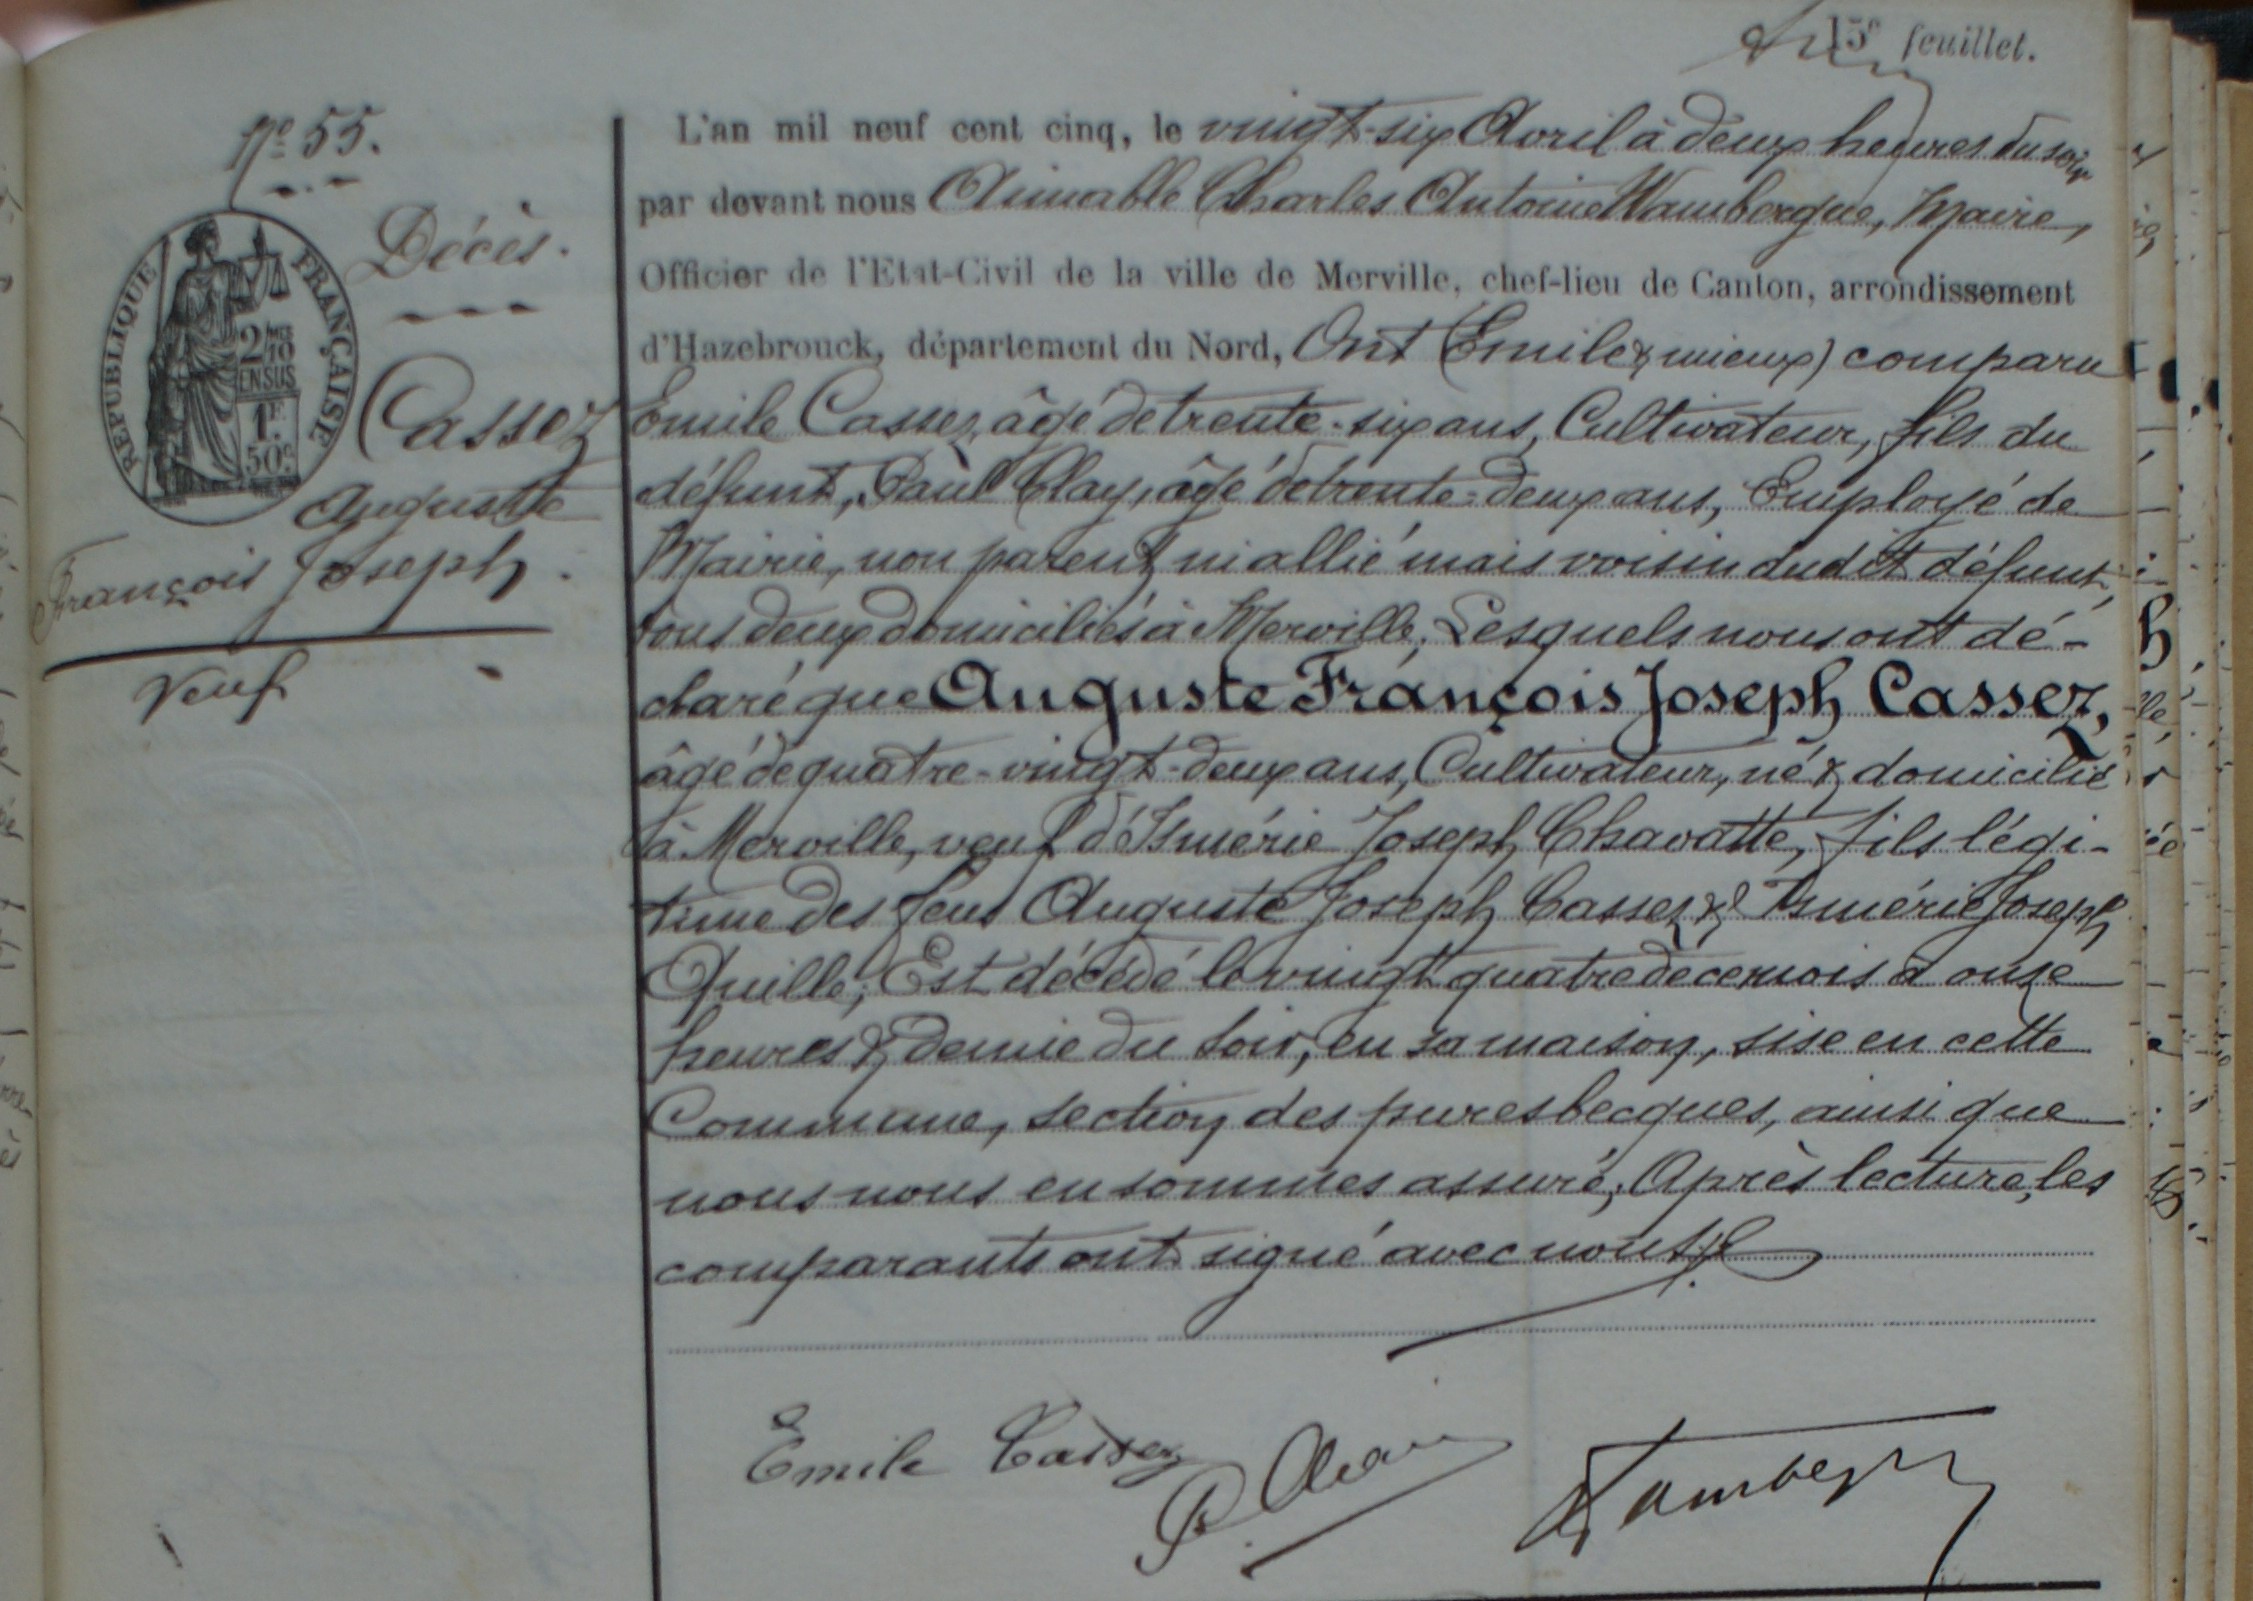 15e feuillet.
No 55.
Décès.
RÉPUBLIQUE FRANÇAISE
2/10
EN SUS
1F
50c
Cassez
Auguste
François Joseph.
Veuf
L'an mil neuf cent cinq, le vingt-six Avril à deux heures du soir
par devant nous Aimable Charles Antoine Wambergue, Maire,
Officier de l'Etat-Civil de la ville de Merville, chef-lieu de Canton, arrondissement
d'Hazebrouck, département du Nord, Ont (Emile & mieux) comparu
Emile Cassez, âgé de trente-six ans, Cultivateur, fils du
défunt, Paul Clay, âgé de trente-deux ans, Employé de
Mairie, non parent ni allié mais voisin dudit défunt,
tous deux domiciliés à Merville; Lesquels nous ont dé-
claré que Auguste François Joseph Cassez,
âgé de quatre-vingt-deux ans, Cultivateur, né & domicilié
à Merville, veuf d'Isménie Joseph Chavatte, fils légi-
time des feus Auguste Joseph Cassez & Isménie Joseph
Quille; Est décédé le vingt quatre de ce mois à onze
heures & demie du soir, en sa maison, sise en cette
Commune, section des pures becques, ainsi que
nous nous en sommes assuré; Après lecture, les
comparants ont signé avec nous
Emile Cassez
P. Clay
Wambergue